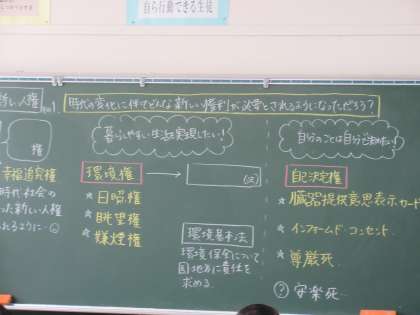 自ら行動できる生徒
新しい人権
No.1
時代の変化に伴てどんな新しい権利が必要とされるようになっただろう?
権
幸福追究権
時代 社会の
った新しい人権
れるように
暮らしやすい生活を実現したい!
環境権
(法)
☆日照権
☆眺望権
☆嫌煙権
環境基本法
環境保全について
国地方に責任を
求める。
自分のことは自分で決めたい!
自己決定権
☆臓器提供意思表示カード
☆インフォームド・コンセント
☆尊厳死
? 安楽死